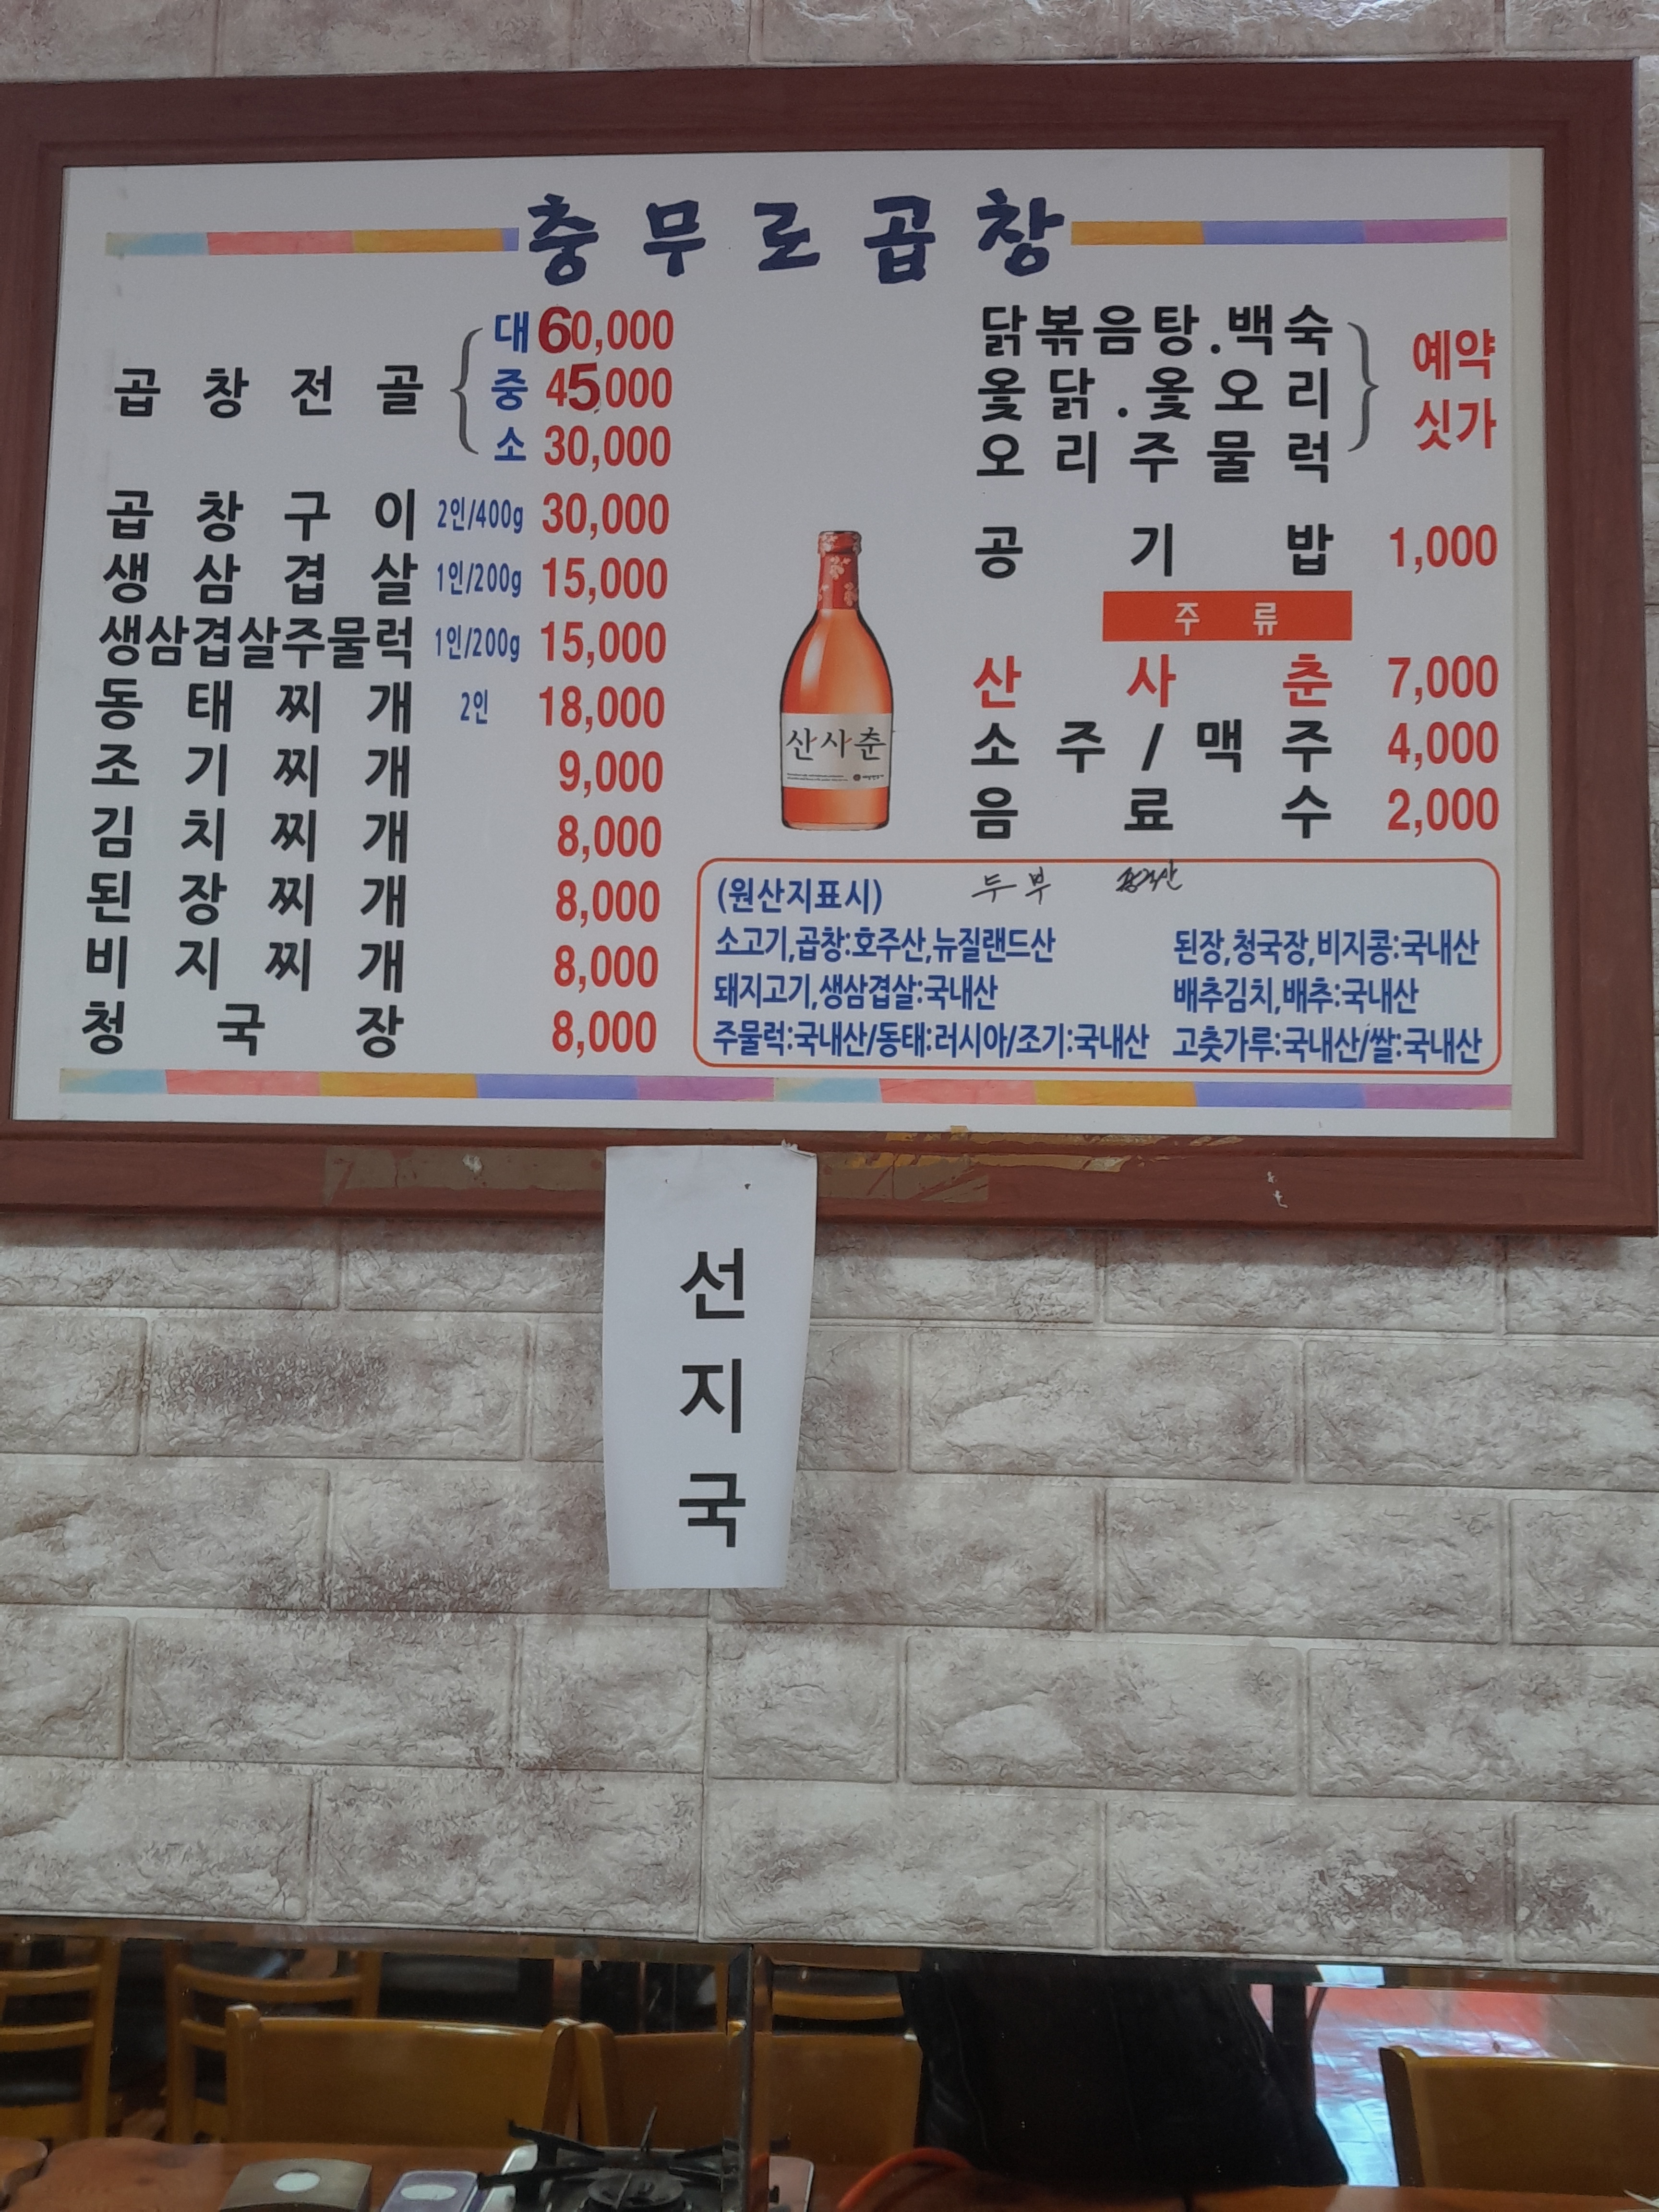 충무로곱창
곱창전골
대 60,000
중 45,000
소 30,000
곱창구이 2인/400g 30,000
생삼겹살 1인/200g 15,000
생삼겹살주물럭 1인/200g 15,000
동태찌개 2인 18,000
조기찌개 9,000
김치찌개 8,000
된장찌개 8,000
비지찌개 8,000
청국장 8,000
닭볶음탕.백숙
옻닭.옻오리
오리주물럭
예약
싯가
공기밥 1,000
주류
산사춘 7,000
소주/맥주 4,000
음료수 2,000
산사춘
(원산지표시) 두부
소고기,곱창:호주산,뉴질랜드산
돼지고기,생삼겹살:국내산
주물럭:국내산/동태:러시아/조기:국내산
된장,청국장,비지콩:국내산
배추김치,배추:국내산
고춧가루:국내산/쌀:국내산
선
지
국